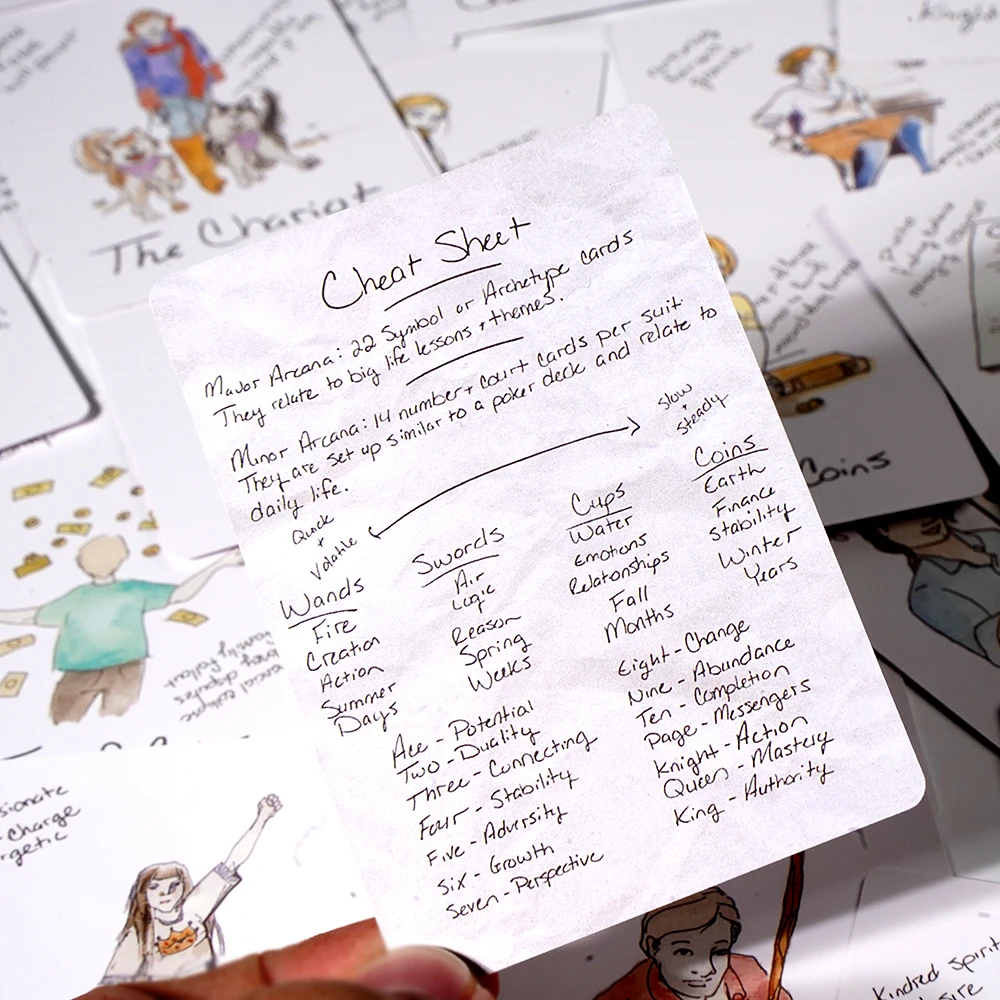 Cheat Sheet
Major Arcana: 22 Symbol or Archetype cards
They relate to big life lessons + themes.
Minor Arcana: 14 number + court cards per suit
They are set up similar to a poker deck and relate to
daily life.
Quick
+
Volatile
slow
+
steady
Wands
Fire
Creation
Action
Summer
Days
Swords
Air
Logic
Reason
Spring
Weeks
Cups
Water
Emotions
Relationships
Fall
Months
Coins
Earth
Finance
Stability
Winter
Years
Ace - Potential
Two - Duality
Three - Connecting
Four - Stability
Five - Adversity
Six - Growth
Seven - Perspective
Eight - Change
Nine - Abundance
Ten - Completion
Page - Messengers
Knight - Action
Queen - Mastery
King - Authority
The Chariot
Knight
Coins
charge
Kindred Spirit